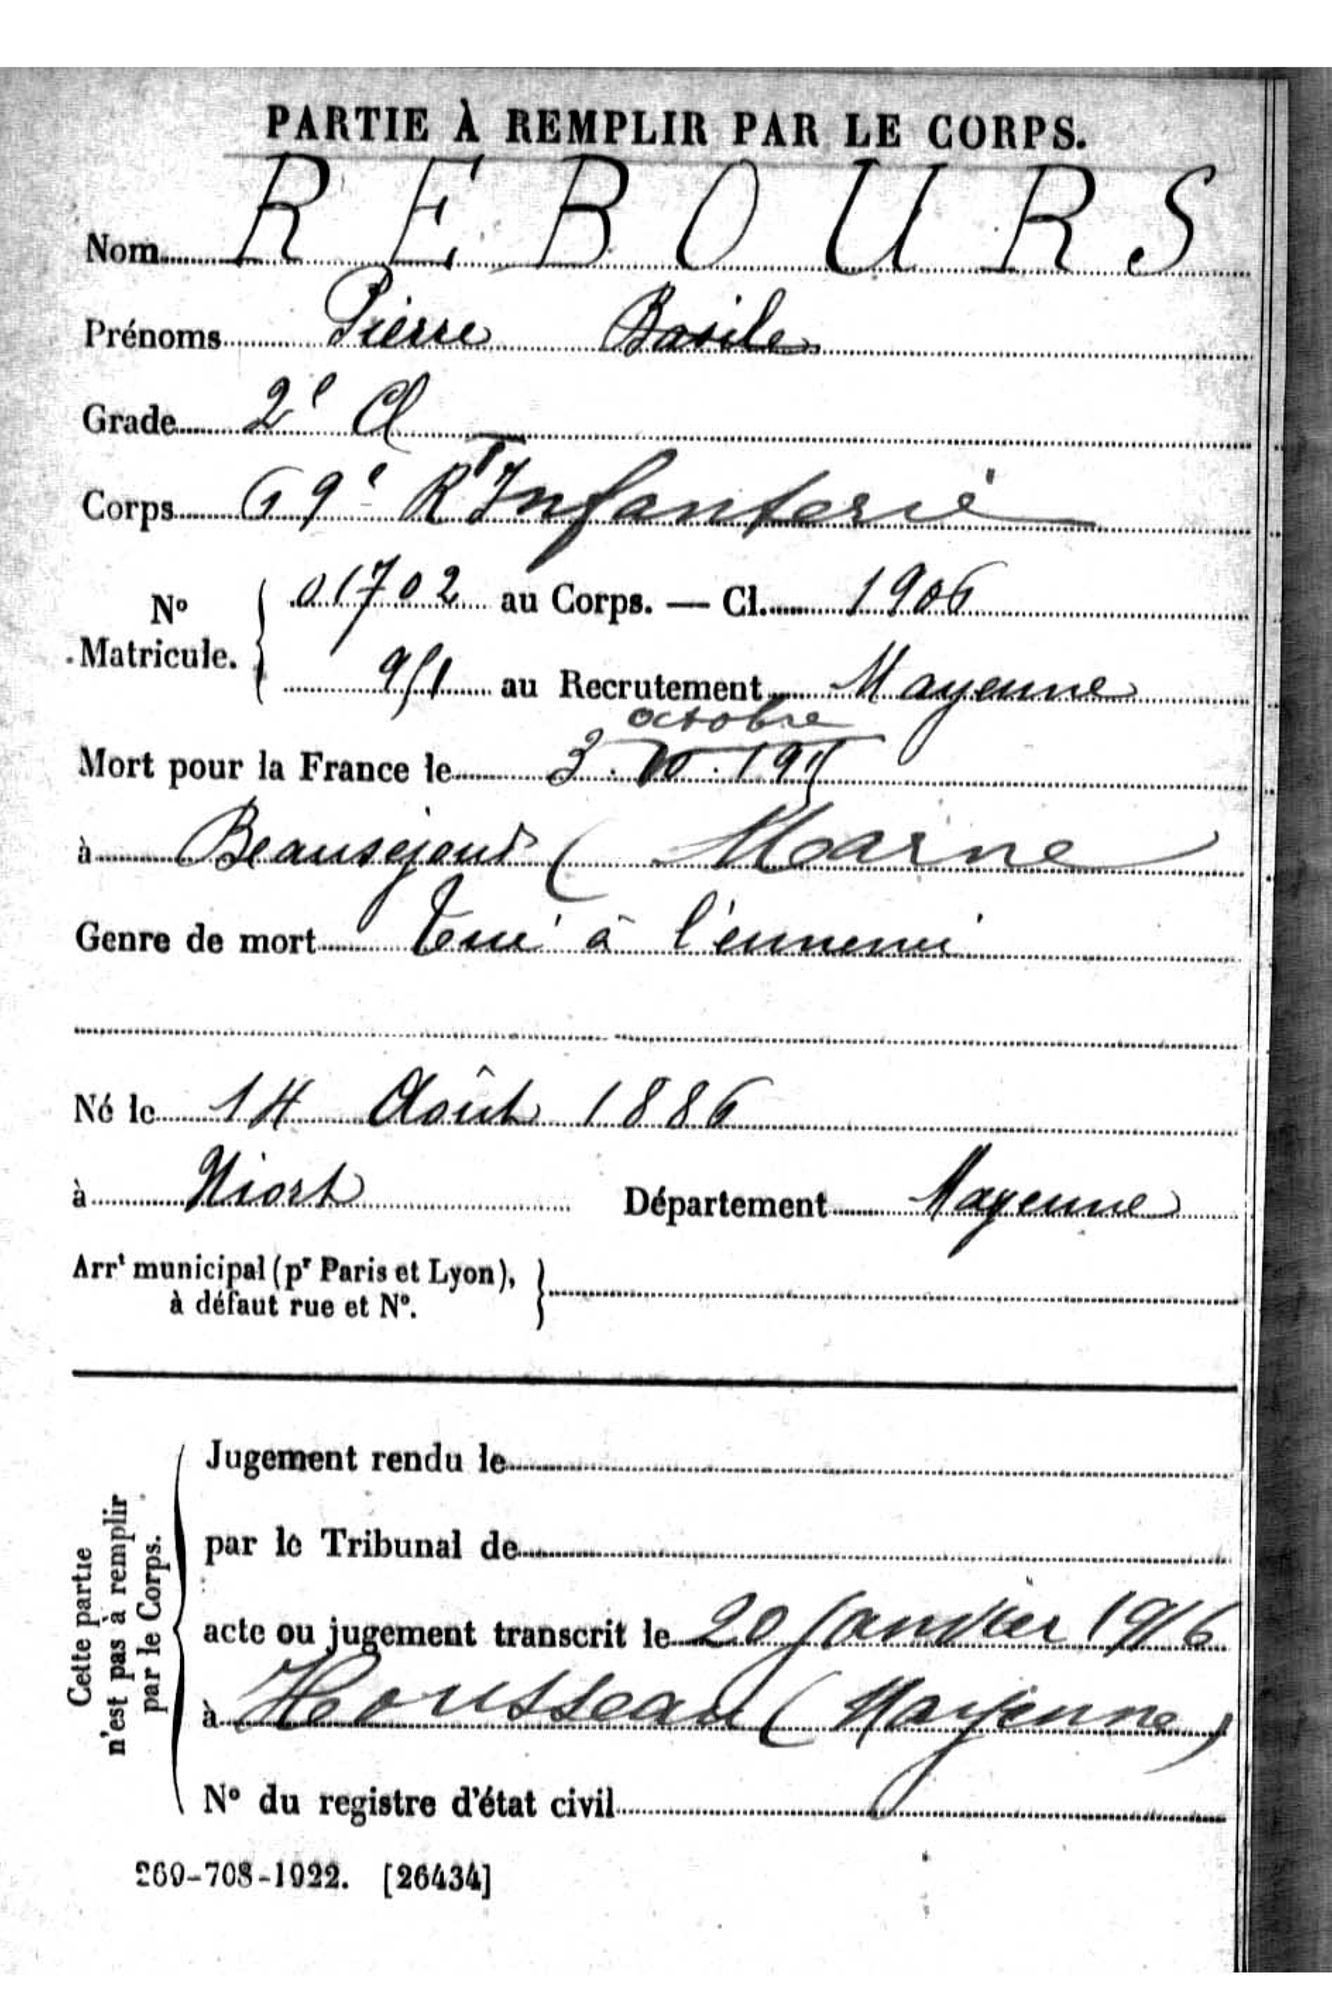 PARTIE À REMPLIR PAR LE CORPS.
Nom REBOURS
Prénoms Pierre Basile
Grade 2e Cl
Corps 69e Rt Infanterie
No Matricule. 01702 au Corps. — Cl. 1906
951 au Recrutement Mayenne
octobre
Mort pour la France le 3.10.1915
à Beauséjour (Marne
Genre de mort Tué à l'ennemi
Né le 14 Août 1886
à Niort Département Mayenne
Arrt municipal (pr Paris et Lyon),
à défaut rue et No.
Cette partie
n'est pas à remplir
par le Corps.
Jugement rendu le
par le Tribunal de
acte ou jugement transcrit le 20 Janvier 1916
à Housseau (Mayenne)
No du registre d'état civil
260-708-1922. [26434]